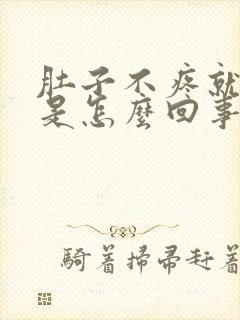 肚子不疼就
是怎麼回事
騎着掃帚赶着